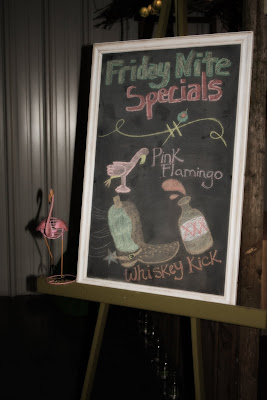 Friday Nite
Specials
Pink
Flamingo
XXX
Whiskey Kick